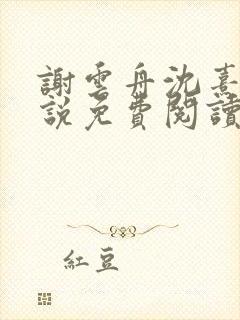 謝雲舟沈熹
說免費閱讀
紅豆